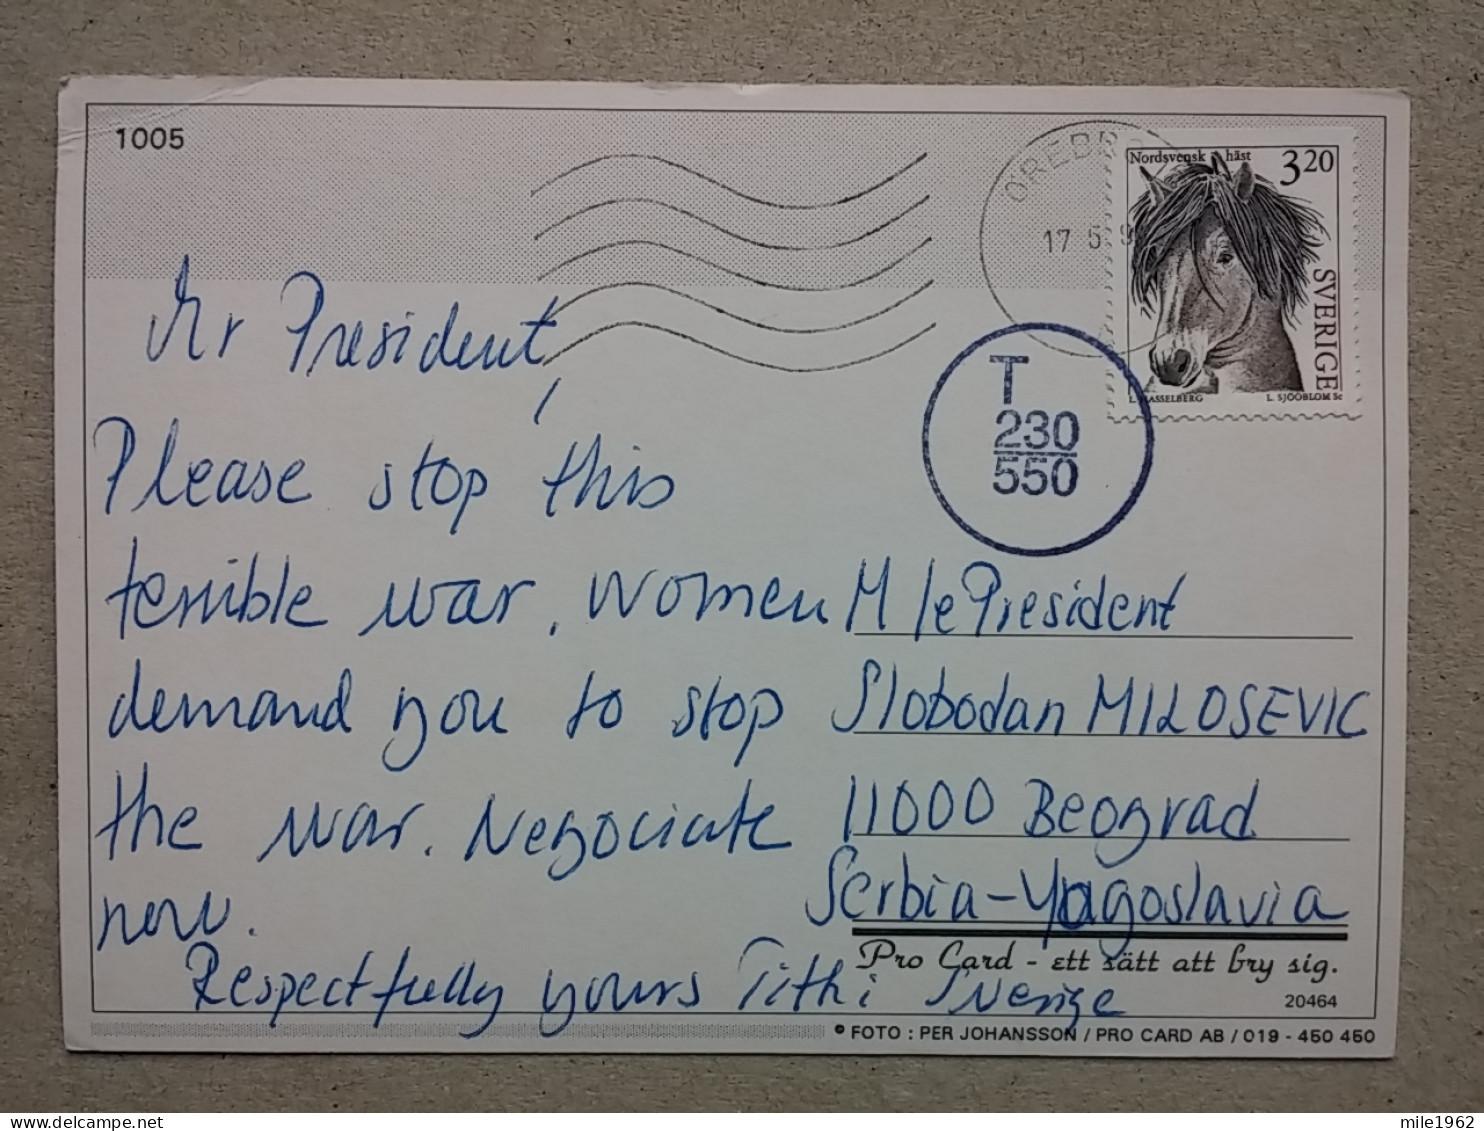 1005
OREBR
17 5 9
Nordsvensk häst
3 20
SVERIGE
L. SJÖÖBLOM Sc
T
230
550
Mr President,
Please stop this
terrible war. Women
demand you to stop
the war. Negociate
now.
Respectfully yours Tithi Sverige
M le President
Slobodan MILOSEVIC
11000 Beograd
Serbia-Yogoslavia
Pro Card - ett sätt att bry sig.
20464
© FOTO : PER JOHANSSON / PRO CARD AB / 019 - 450 450
mile1962